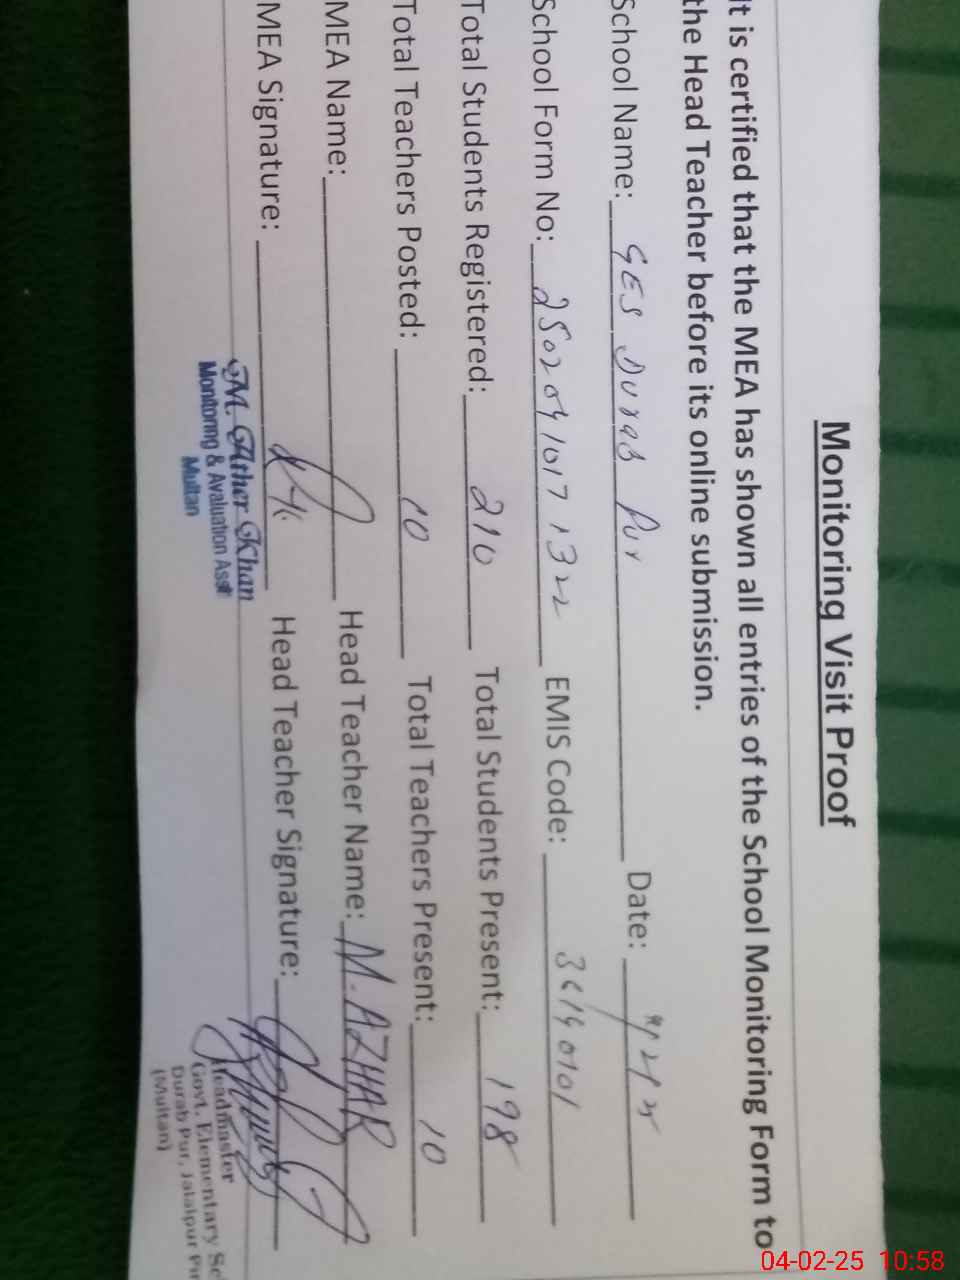 Monitoring Visit Proof
It is certified that the MEA has shown all entries of the School Monitoring Form to
the Head Teacher before its online submission.
School Name: GES Durab Pur Date:
School Form No: 2502041017 1322 EMIS Code:
Total Students Registered: 210 Total Students Present: 198
Total Teachers Posted: 10 Total Teachers Present: 10
MEA Name: Head Teacher Name: M. AZHAR
MEA Signature: Head Teacher Signature:
M. Ather Khan
Monitoring & Avaluation Asst
Multan
Headmaster
Govt. Elementary
Durab Pur, Jalalpur
(Multan)
04-02-25 10:58